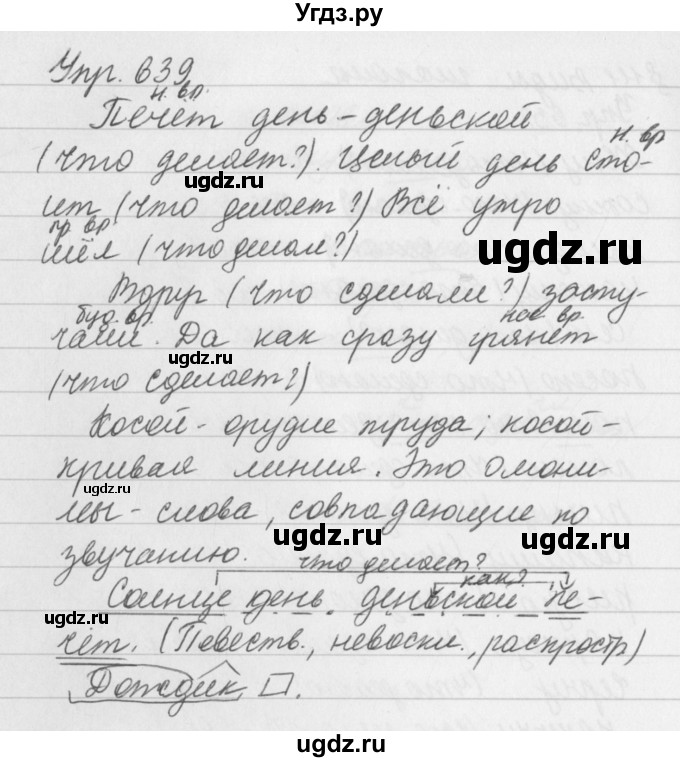 Угдз.ру
Упр. 639
н. вр.
Печёт день-деньской
н. вр
(что делает?). Целый день сто-
ugdz.ru
ит (что делает?) Всё утро
пр. вр.
шёл (что делал?)
ugdz.ru
Вдруг (что сделали?) засту-
буд. вр. нас. вр.
чали. Да как сразу грянет
ugdz.ru
(что сделает?)
Косой - орудие труда; косой-
кривая линия. Это омони-
ugdz.ru
мы - слова, совпадающие по
ugdz.ru
звучанию. что делает?
как?
Солнце день деньской пе-
ugdz.ru
чёт. (Повеств., невоскл., распростр)
Дождик .
ugdz.ru
ugdz.ru